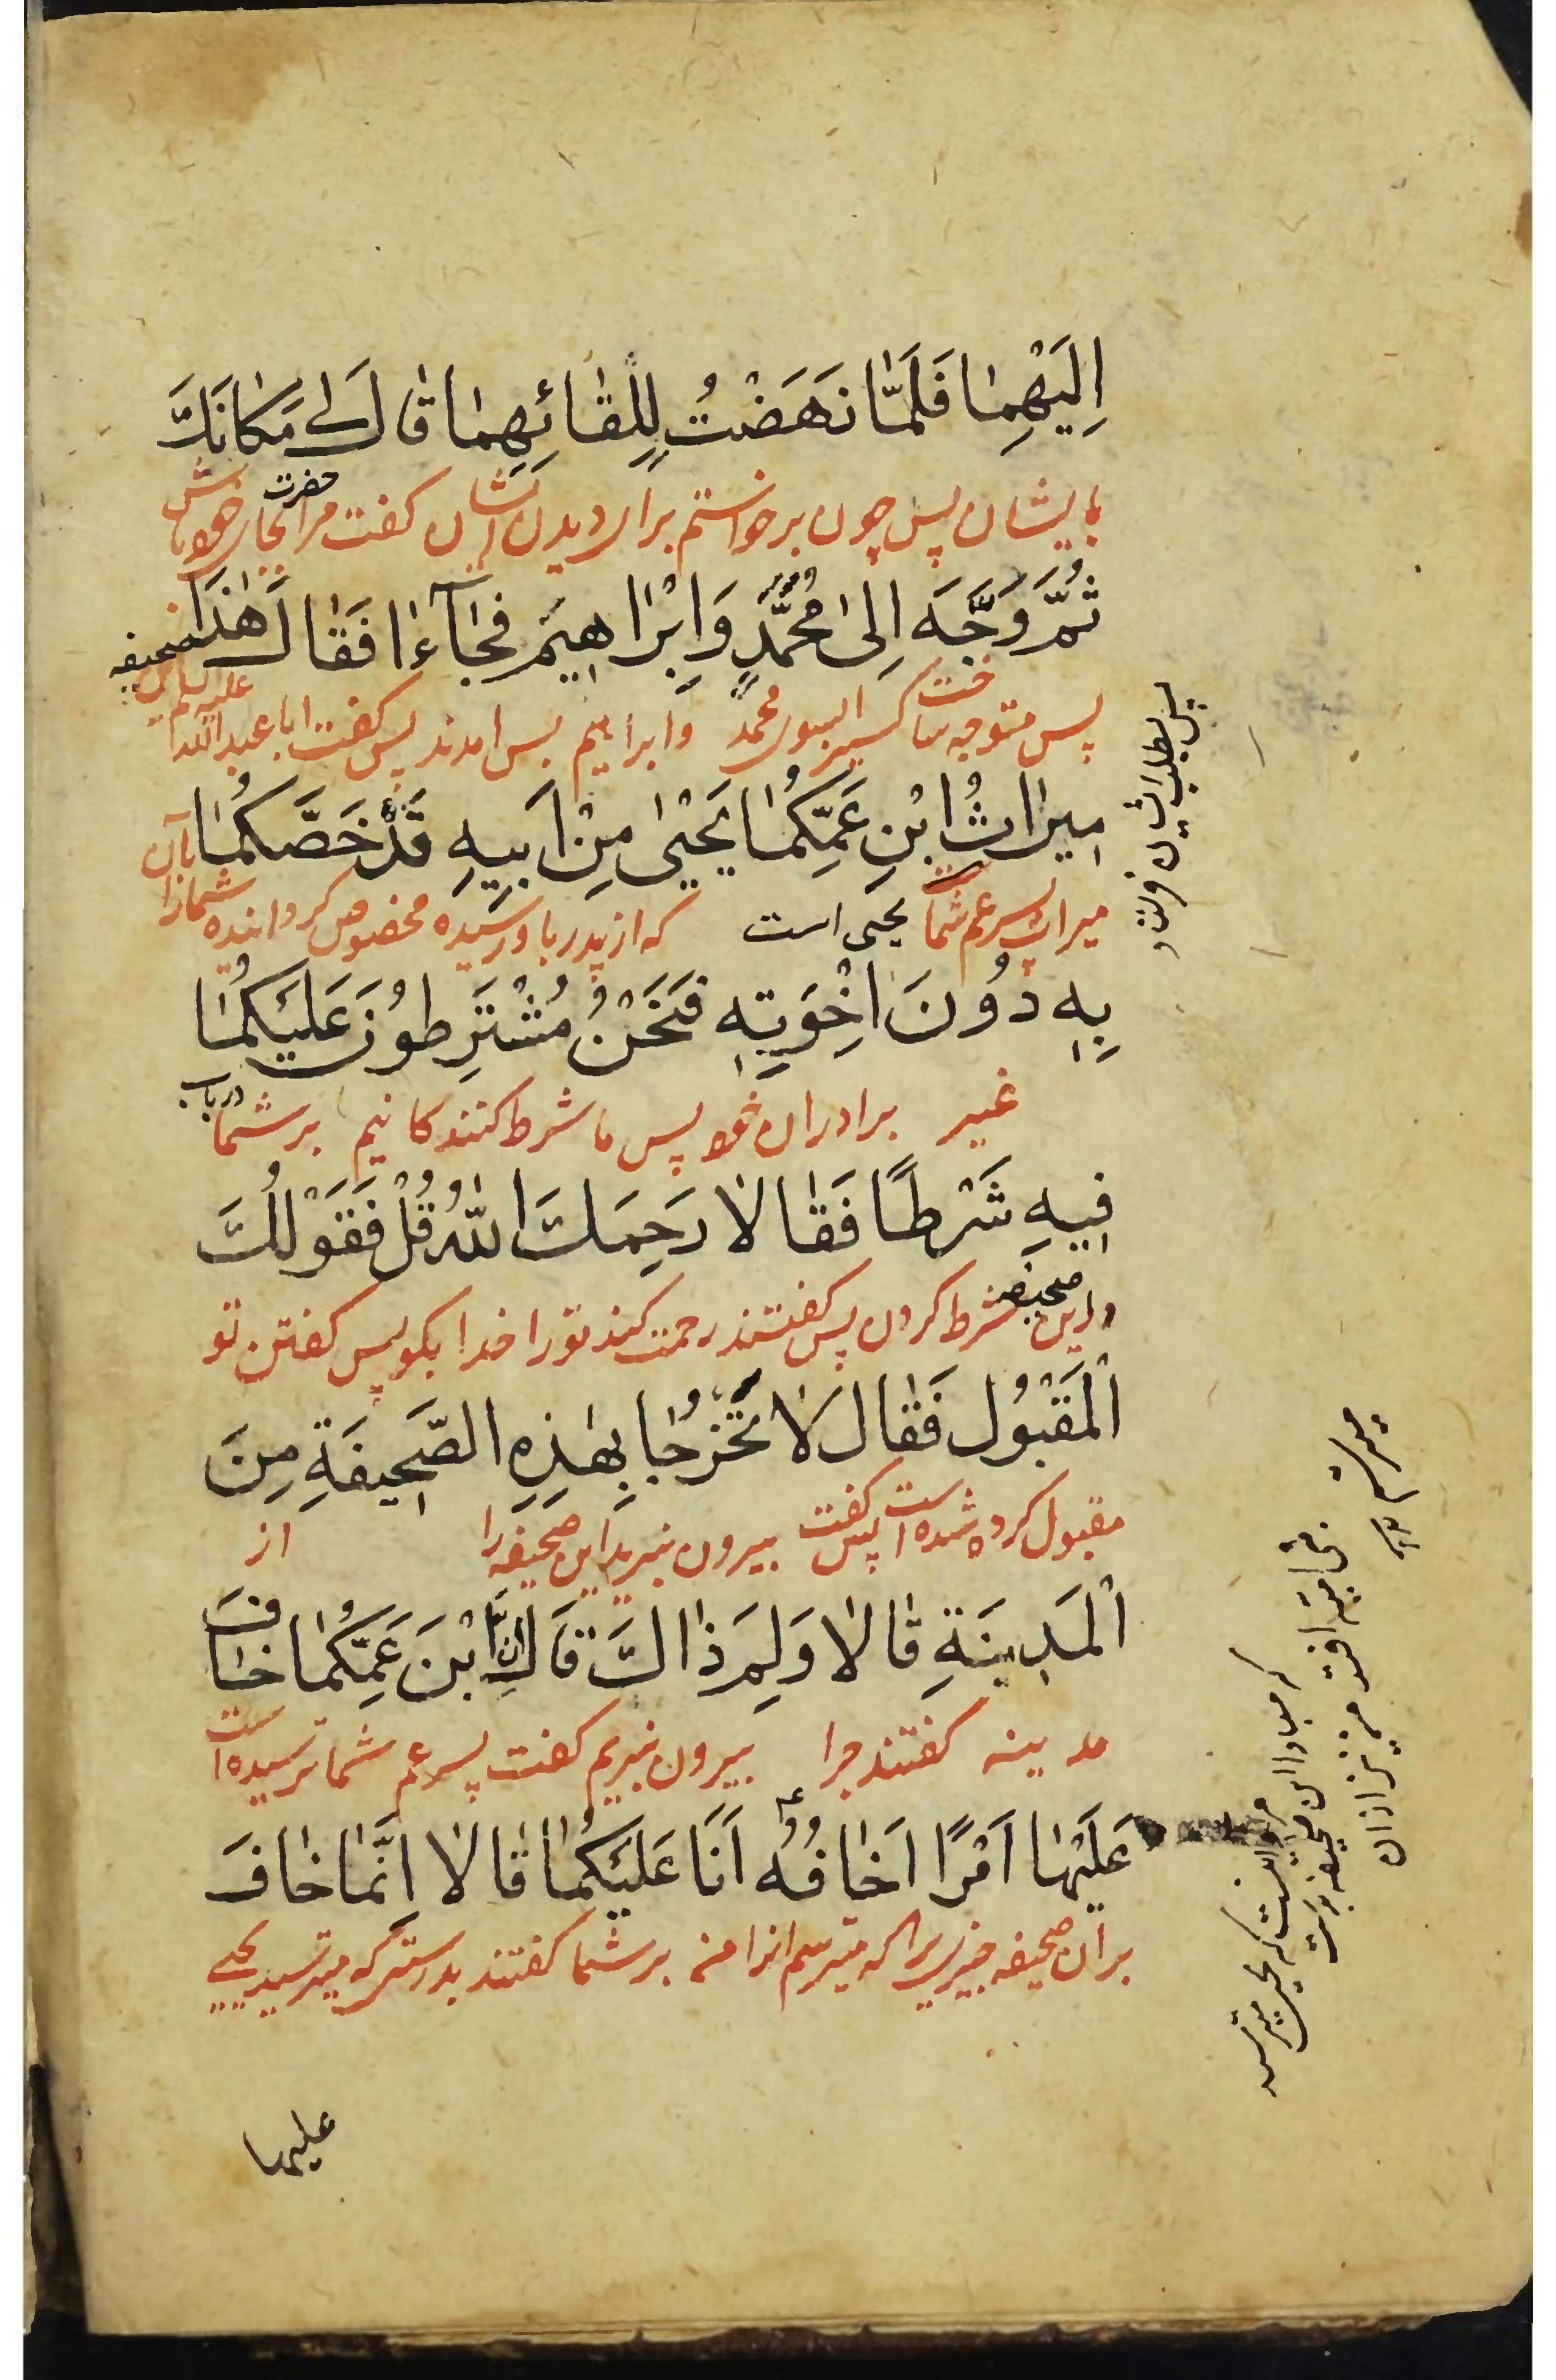 اِلَیْهِمٰا فَلَمّٰا نَهَضْتُ لِلِقٰائِهِمٰا قٰالَ لٖی مَکٰانَكَ
بایشان پس چون برخواستم برای دیدن ایشان کفت مرا حضرت بجای خود باش
ثُمَّ وَجَّهَ اِلیٰ مُحَمَّدٍ وَ اِبْرٰاهِیمَ فَجٰآءٰا فَقٰالَ هٰذٰا
پس متوجه ساخت کسیرا بسوی محمد وابراهیم پس امدند پس کفت ابا عبدالله علیه السلام این صحیفه
مِیرٰاثُ ابْنِ عَمِّکُمٰا یَحْییٰ مِنْ اَبِیهِ قَدْ خَصَّکُمٰا
میراث پسر عم شما یحیی است که از پدر باو رسیده مخصوص کردانیده شمارا بآن
بِهِ دُونَ اِخْوَتِهِ وَنَحْنُ مُشْتَرِطُونَ عَلَیْکُمٰا
غیر برادران خود پس ما شرط کنندکانیم بر شما در باب
فِیهِ شَرْطًا فَقٰالٰا رَحِمَكَ اللّٰهُ قُلْ فَقَوْلُكَ
این صحیفه شرط کردن پس کفتند رحمت کند تورا خدا بکو پس کفتن تو
اْلمَقْبُول فَقٰالَ لٰا تَخْرُجٰا بِهٰذِهِ الصَّحِیفَةِ مِنَ
مقبول کرده شده است پس کفت بیرون نبرید این صحیفه را از
اْلمَدِینَةِ قٰالٰا وَلِمَ ذٰاكَ قٰالَ اِنَّ ابْنَ عَمِّکُمٰا خٰافَ
مدینه کفتند چرا بیرون نبریم کفت پسر عم شما ترسیده است
عَلَیْهٰا اَمْرًا اَخٰافُهُ اَنَا عَلَیْکُمٰا قٰالٰا اِنَّمٰا خٰافَ
بر آن صحیفه چیزیرا که میترسم انرا من بر شما کفتند بدرستیکه میترسید یحیی
علیها
پس بطلب ایشان فرستاد
که یحیی میترسد
که مبادا این صحیفه بدست
بنی امیه افتد من نیز ازان
میترسم